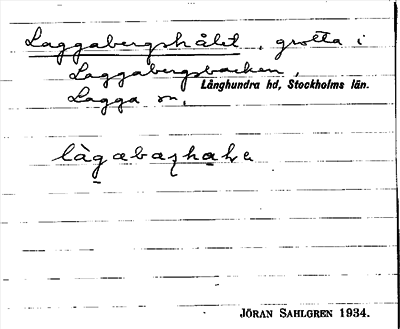 Laggabergshålet, grotta i
Laggabergsbacken,
Långhundra hd, Stockholms län.
Lagga sn,
JÖRAN SAHLGREN 1934.